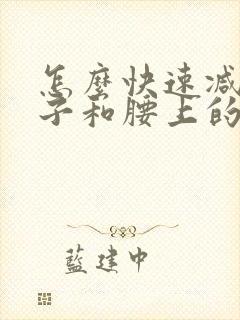 怎麼快速减
子和腰上的
藍建中